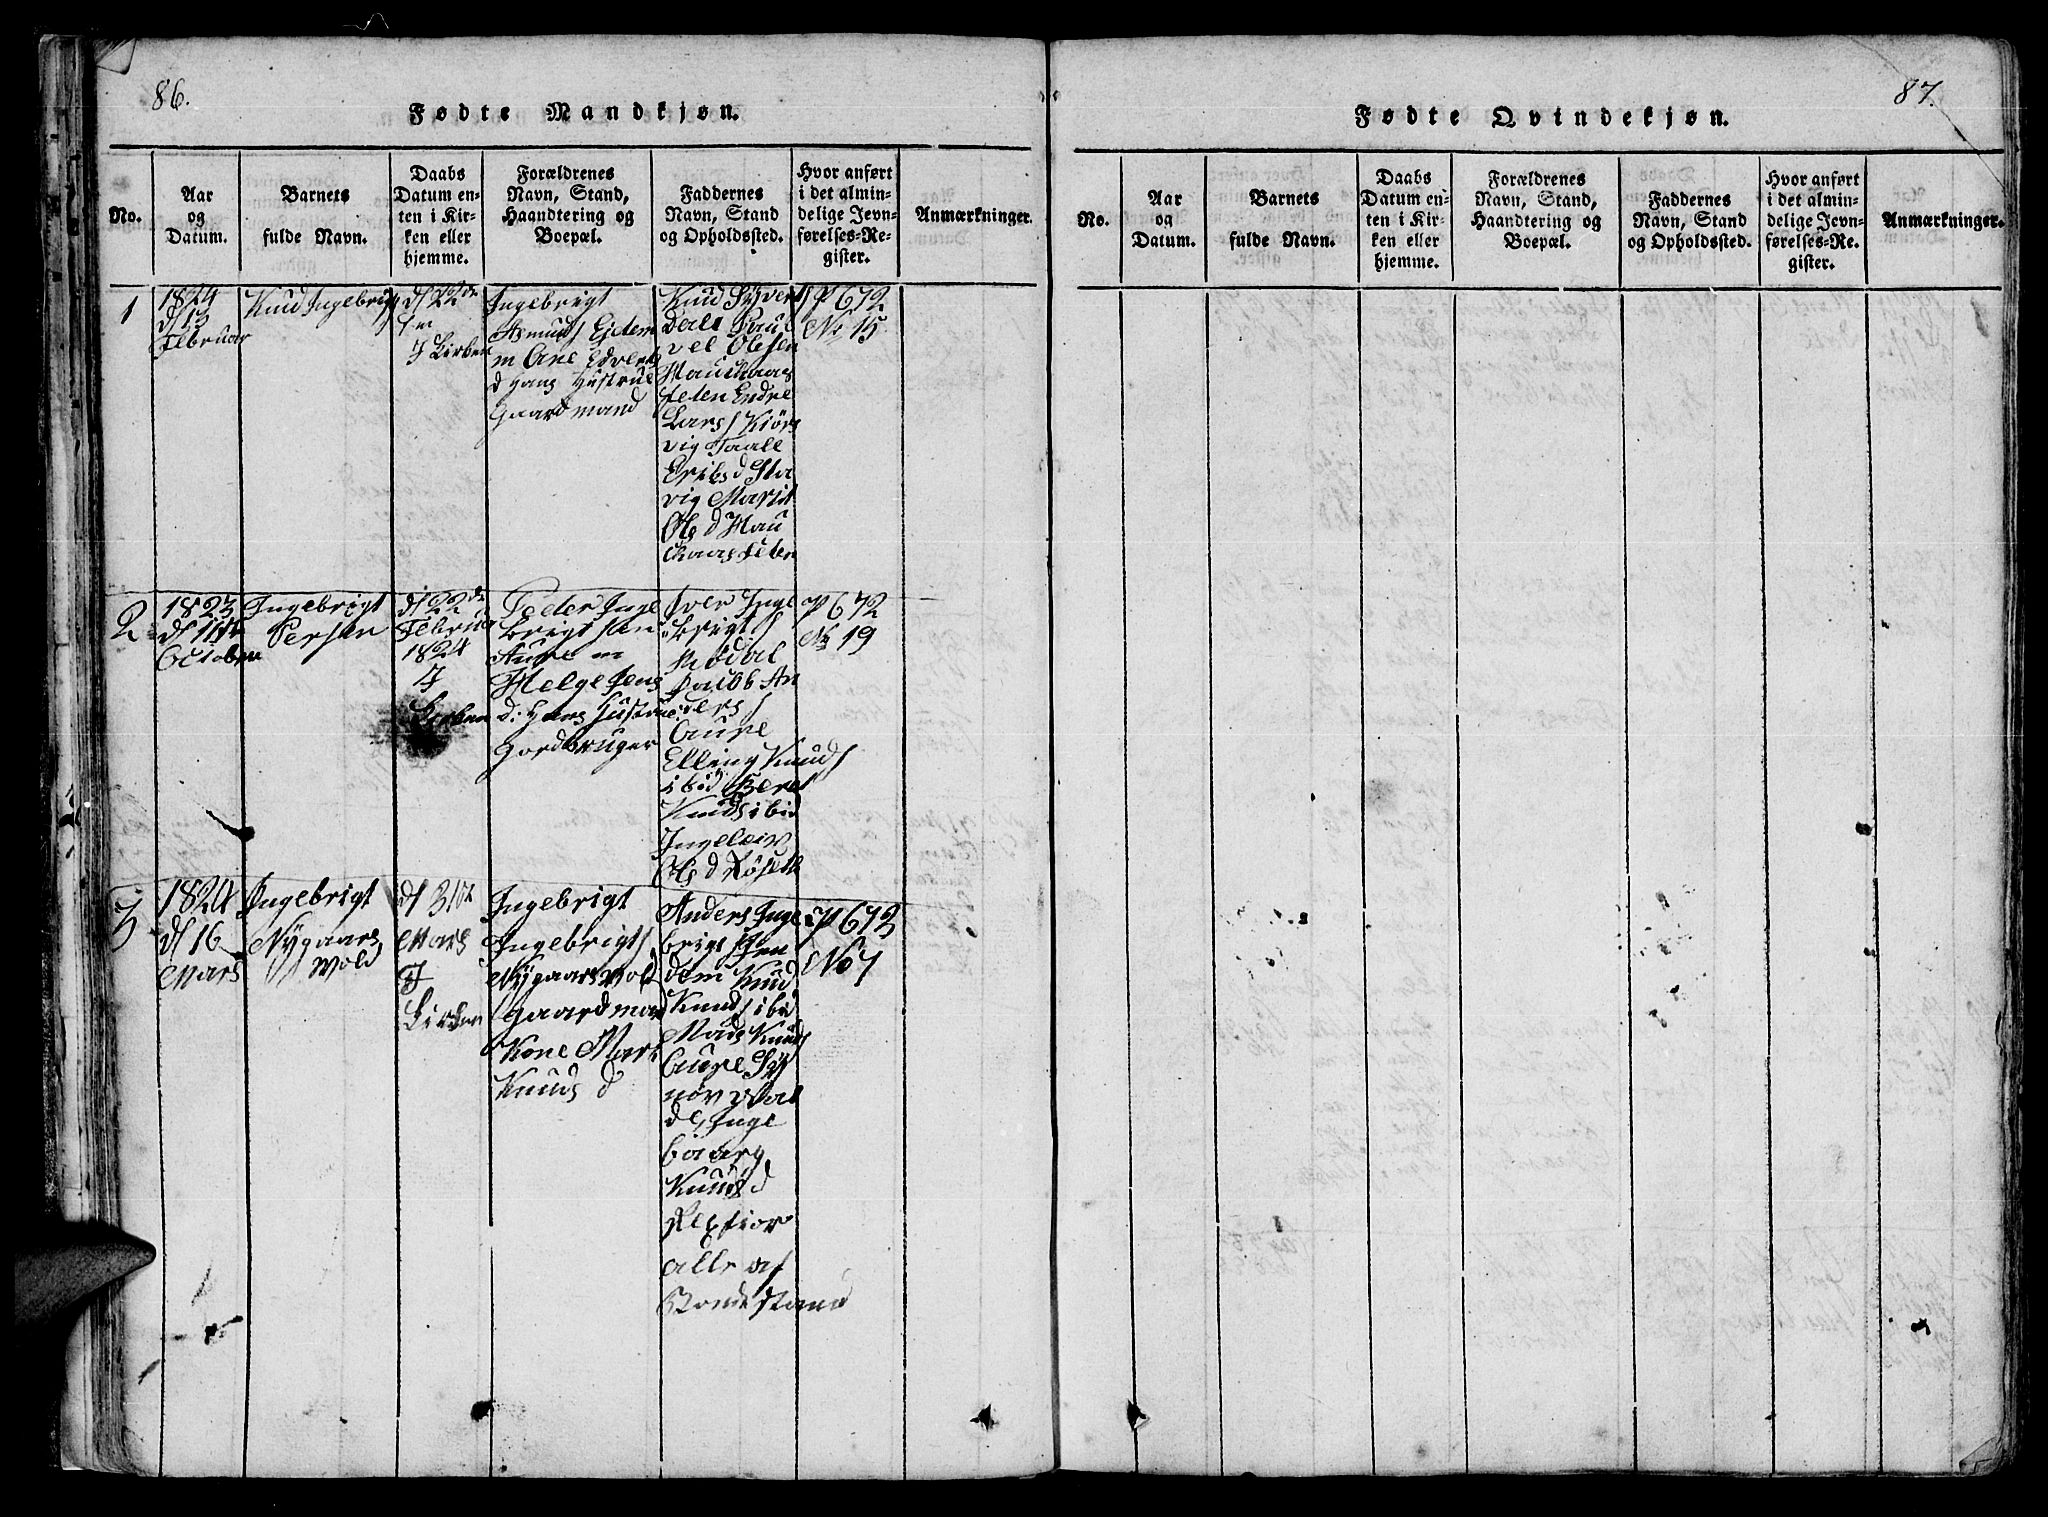 86.
Fødte Mandkjøn.
No.
Aar
og
Datum.
Barnets
fulde Navn.
Daabs
Datum en-
ten i Kir-
ken eller
hjemme.
Forældrenes
Navn, Stand,
Haandtering og
Boepæl.
Faddernes
Navn, Stand
og Opholdssted.
Hvor anført
i det almin-
delige Jevn-
førelses-Re-
gister.
Anmærkninger.
1
1824
d 13
Februar
Knud Ingebrigts
d 22de
I Kirken
Ingebrigt
Asmunds Eidem
m Ane Edverts
d Hans Hustrue
Gaardmand
Knud Syvert
dals Pau
vel Olsen
Haukaas
feten Endre
Lars Kiørs
vig Paale
Eriks d Sta
vig Marit
Ols d Hau
kaasfeten
P 672
No 15
2
1823
d 11te
October
Ingebrigt
Persen
d 22de
Februar
1824
I
Kirken
Peder Inge
brigtsen
Aure m
Helge Jens
d: Hans Hustrue:
Gordbruger
Iver Inge
brigts
Mødal
Jacob An
ders
Aure
Elling Knuds
ibid Beret
Knuds ibid
Ingeleiv
Ols d Røseth
P 672
No 19
3
1824
d 16
Mars
Ingebrigt
Nygaars
Wold
d 31te
Mars
I
Kirken
Ingebrigt
Ingebrigts
Nygaarsvold
Gaardmand
Kone Marit
Knuds d
Anders Inge
brigts
dem Knud
Knuds ibid
Mads Knuds
Aure Sy
nøv
de, Inge
baarg
Knuds d
alle af
Bondestand
P 673
No 1
87.
Fødte Qvindekjøn.
No.
Aar
og
Datum.
Barnets
fulde Navn.
Daabs
Datum en-
ten i Kir-
ken eller
hjemme.
Forældrenes
Navn, Stand,
Haandtering og
Boepæl.
Faddernes
Navn, Stand
og Opholdssted.
Hvor anført
i det almin-
delige Jevn-
førelses-Re-
gister.
Anmærkninger.